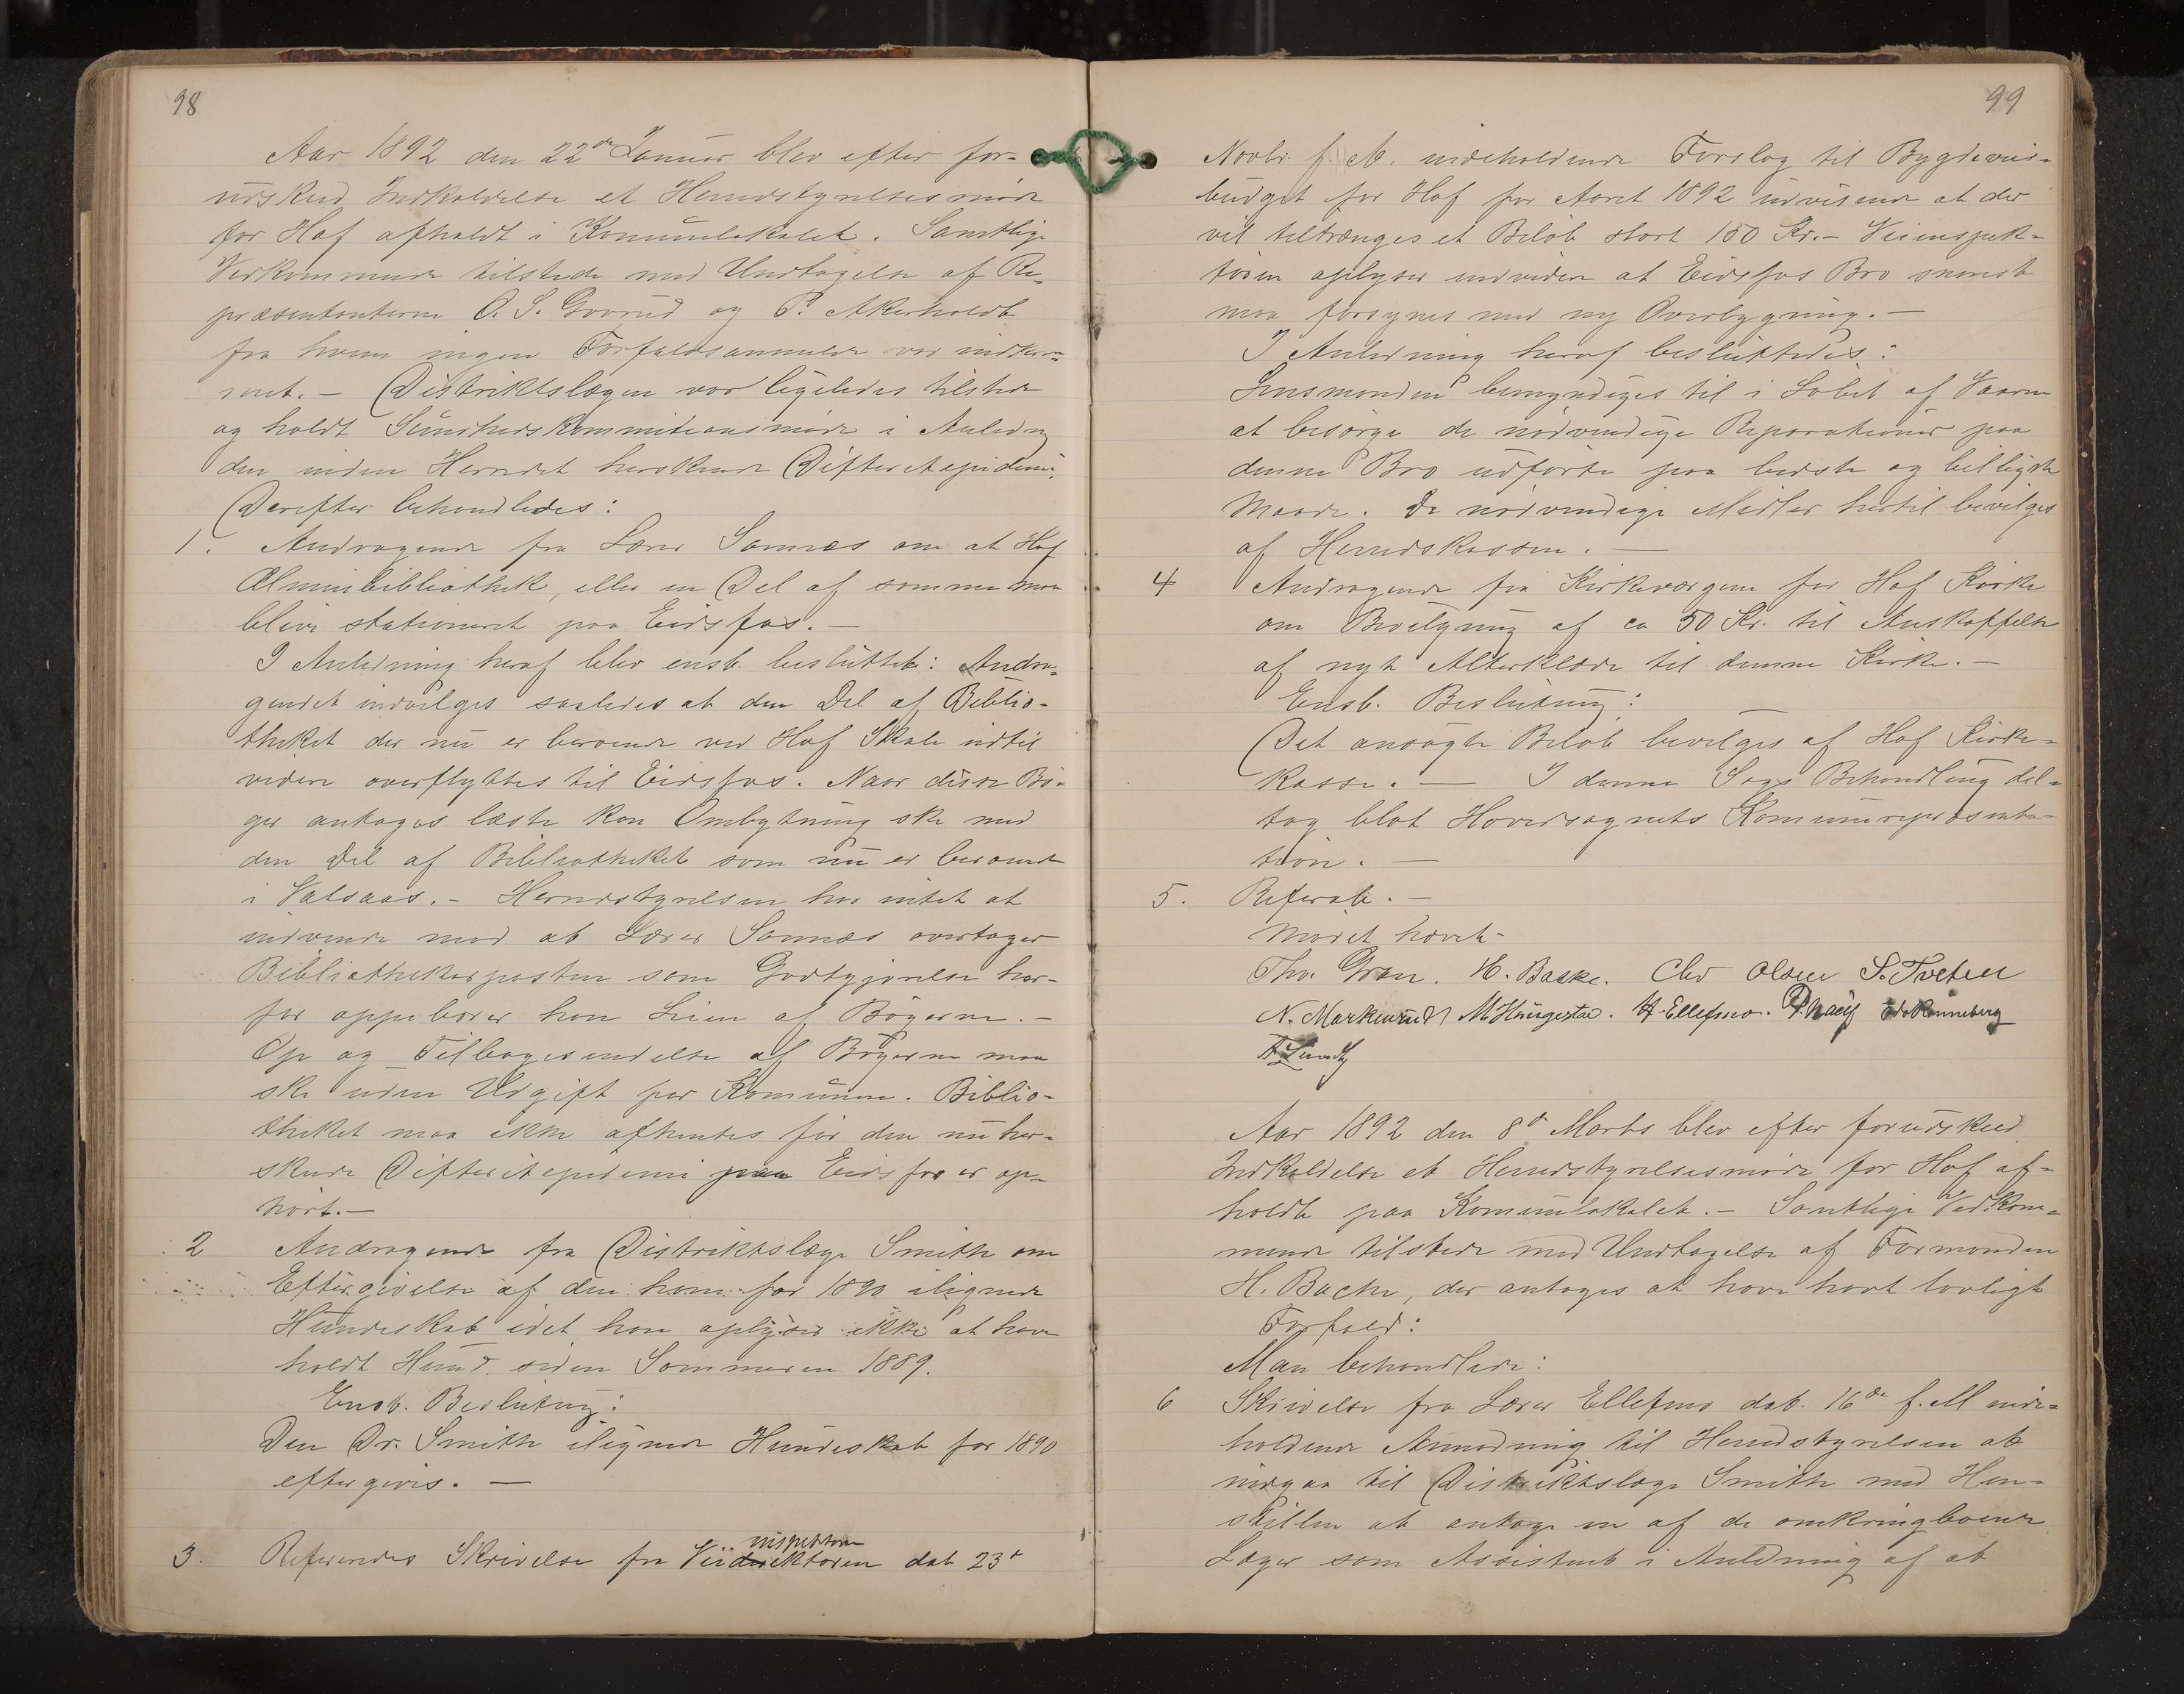 98
Aar 1892 den 22de Januar blev efter for-
udskeed Indkaldelse et Herredstyrelsesmöde
for Hof afholdt i Komunelokalet. Samtlige
Vedkommende tilstede med Undtagelse af Re-
præsentanterne O. S. Govrud og P. Akerholdt
fra hvem ingen Forfaldsanmelde var indkom-
met. – Distriktslægen var ligeledes tilstede
og holdt Sundhedskommisionsmöde i Anledng
den inden Herredet herskende Difteritepidemi.
Derefter behandledes:
1. Andragende fra Lærer Sannæs om at Hof
Almuebibliothek, eller en Del af samme maa
blive stationeret paa Eidsfos. –
I Anledning heraf blev ensb. besluttet: Andra-
gendet indvilges saaledes at den Del af Biblio-
theket der nu er beroende ved Hof Skole indtil
videre overflyttes til Eidsfos. Naar disse Bö-
ger antages læste kan Ombytning ske med
den Del af Bibliotheket som nu er beroende
i Vatsaas. – Herredstyrelsen har intet at
indvende mod at Lærer Sannæs overtager
Bibliothekarposten som Godtgjörelse her-
for oppebærer han Leien af Bögerne. –
Op og Tilbagesendelse af Bögerne maa
ske uden Udgift for Komunen. Biblio-
theket maa ikke afhentes för den nu her-
skende Difteritepidemi paa Eidsfos er op-
hört. –
2 Andragende fra Distriktslæge Smith om
Eftergivelse af den ham for 1890 ilignede
Hundeskat idet han oplyser ikke at have
holdt Hund siden Sommeren 1889.
Ensb. Beslutning:
Den Dr. Smith ilignede Hundeskat for 1890
eftergives. –
inspektören
3. Refereredes Skrivelse fra Veidirektören dat 23d
99
Novbr. f. A. indeholdende Forslag til Bygdeveis-
budget for Hof for Aaret 1892 udvisende at der
vil tiltrænges et Belöb stort 150 Kr. – Veiinspek-
tören oplyser endvidere at Eidsfos Bro snarest
maa forsynes med ny Overbygning. –
I Anledning heraf besluttedes:
Lensmanden bemyndiges til i Löbet af Vaaren
at besörge de nödvendige Reparationer paa
denne Bro udförte paa bedste og billigste
Maade. De nödvendige Midler hertil bevilges
af Herredskassen. –
4 Andragende fra Kirkeværgen for Hof Kirke
om Bevilgning af ca 50 Kr. til Anskaffelse
af nyt Alterklæde til denne Kirke. –
Ensb. Beslutning:
Det ansögte Belöb bevilges af Hof Kirke-
kasse. – I denne Sags Behandling del-
tog blot Hovedsognets Komunerepræsenta-
tion. –
5. Referat. –
Mödet hævet –
Thv. Gran. H. Backe. Chr Olsen S. Tveten
N. Markerud M Haugestad. H. Ellefsmo. Edv Rønneberg
Aar 1892 den 8de Marts blev efter forudskeed
Indkaldelse et Herredstyrelsesmöde for Hof af-
holdt paa Komunelokalet. – Samtlige Vedkom-
mende tilstede med Undtagelse af Formanden
H. Backe, der antages at have havt lovligt
Forfald:
Man behandlede:
6 Skrivelse fra Lærer Ellefsmo dat. 16de f. M inde-
holdende Anmodning til Herredstyrelsen at
indgaa til Distriktslæge Smith med Hen-
stillen at antage en af de omkringboende
Læger som Assistent i Anledning af at